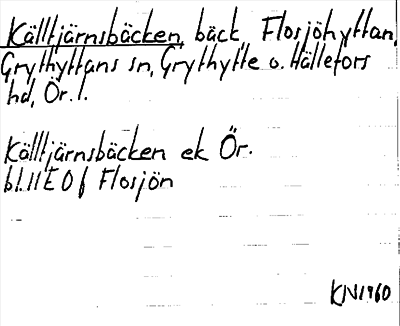 Källtjärnsbäcken, bäck, Flosjöhyttan,
Grythyttans sn, Grythytte o. Hällefors
hd, Ör. l.
Källtjärnsbäcken ek Ör.
bl. 11E 0f Flosjön
KN 1960